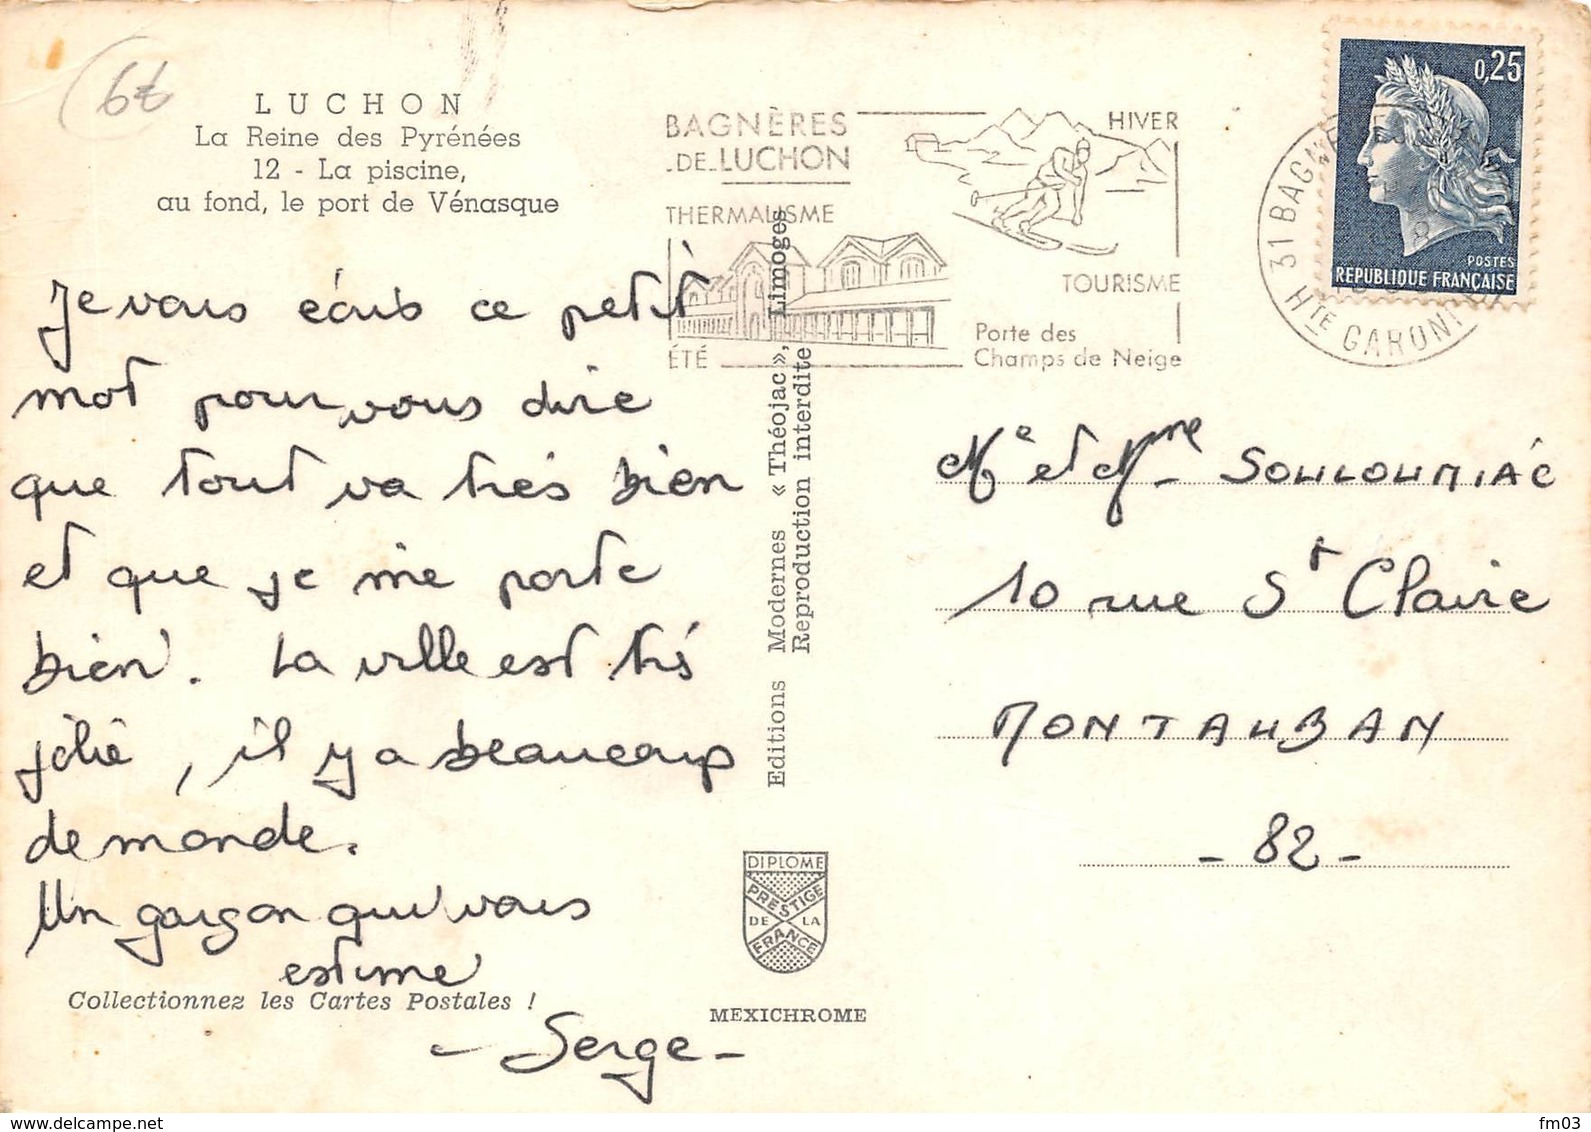 6€
LUCHON
La Reine des Pyrénées
12 - La piscine,
au fond, le port de Vénasque
Je vous écris ce petit
mot pour vous dire
que tout va très bien
et que je me porte
bien. La ville est très
jolie, il y a beaucoup
de monde.
Un garçon qui vous
estime
- Serge -
Collectionnez les Cartes Postales !
Editions Modernes « Théojac », Limoges
Reproduction interdite
DIPLOME
PRESTIGE
DE LA
FRANCE
MEXICHROME
BAGNÈRES
-DE-LUCHON
THERMALISME
ÉTÉ
HIVER
TOURISME
Porte des
Champs de Neige
31 BAGNE
Hte GARONNE
0,25
POSTES
REPUBLIQUE FRANÇAISE
Mr et Mme SOULOUMIAC
10 rue St Claire
MONTAUBAN
- 82 -
delcampe.net
fm03